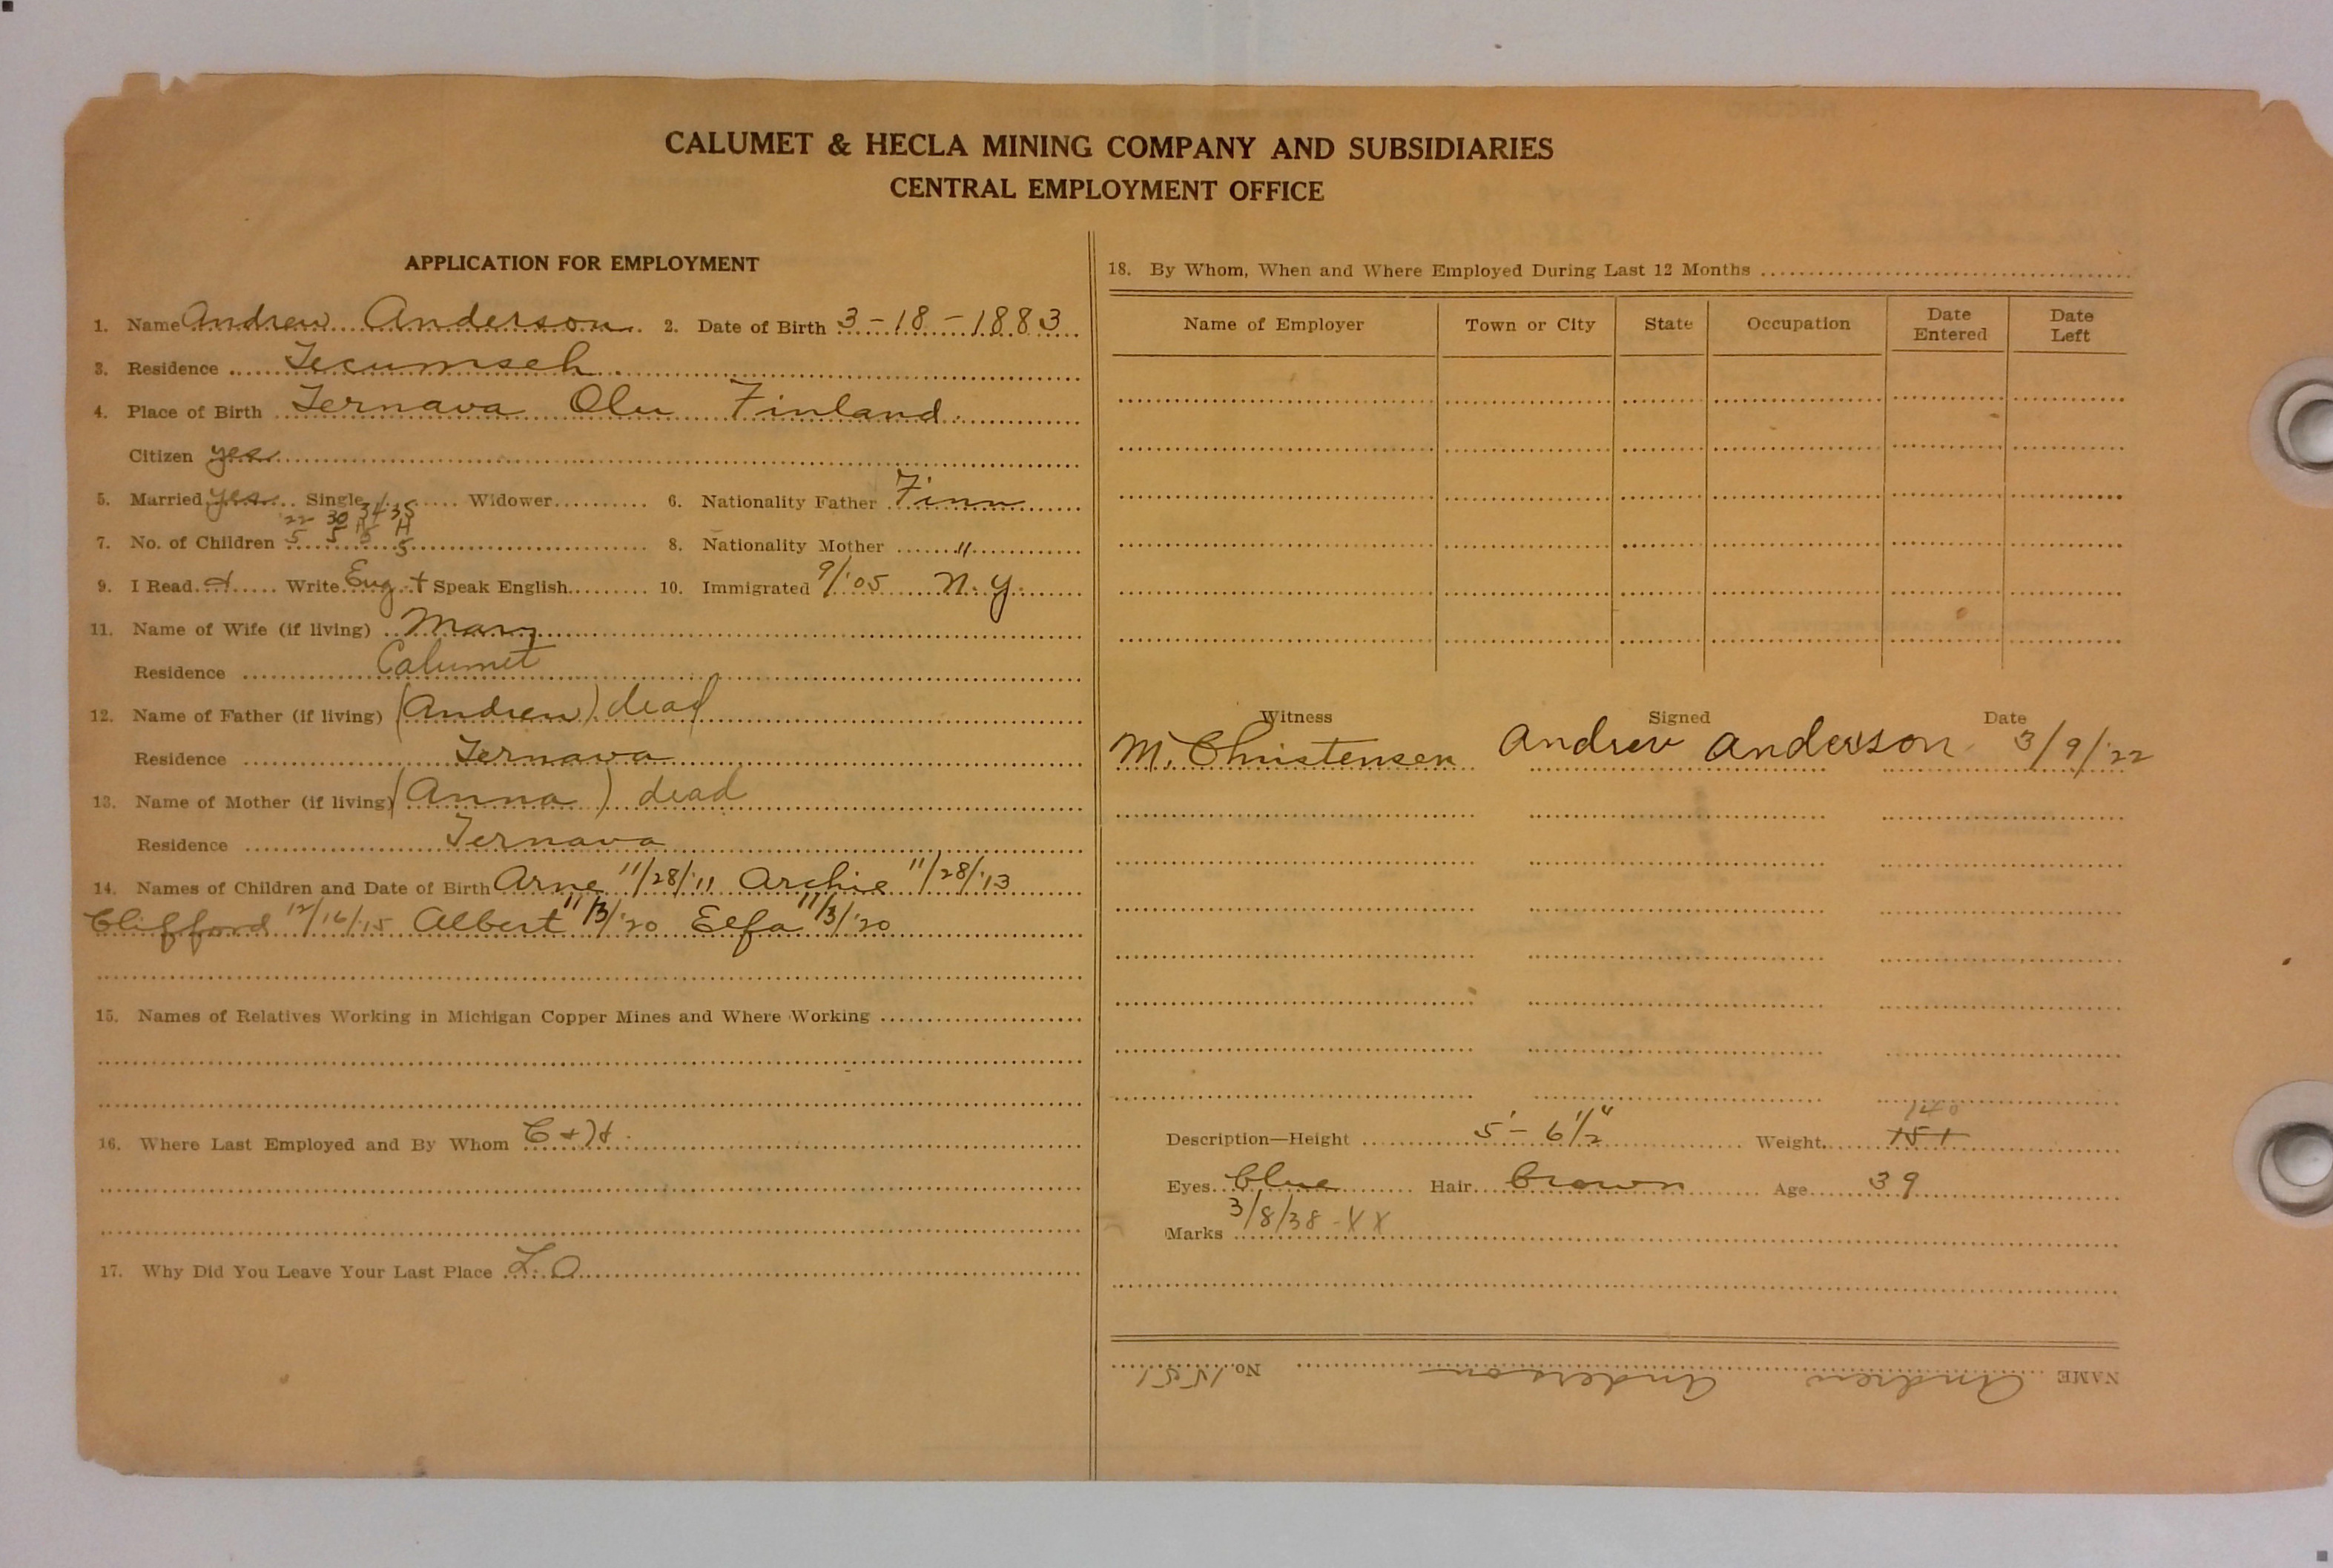 CALUMET & HECLA MINING COMPANY AND SUBSIDIARIES
CENTRAL EMPLOYMENT OFFICE
APPLICATION FOR EMPLOYMENT
1. Name Andrew Anderson 2. Date of Birth 3-18-1883
3. Residence Tecumseh
4. Place of Birth Ternava Olu Finland
Citizen yes
5. Married yes Single Widower 6. Nationality Father Finn
'22 30 34 35
H H
7. No. of Children 5 5 5 5 8. Nationality Mother "
9. I Read + Write Eng + Speak English 10. Immigrated 9/'05 N.Y.
11. Name of Wife (if living) Mary
Residence Calumet
12. Name of Father (if living) (Andrew) dead
Residence Ternava
13. Name of Mother (if living) (Anna) dead
Residence Ternava
14. Names of Children and Date of Birth Arne 11/28/'11 Archie 11/28/'13
Clifford 12/16/'15 Albert 11/3/'20 Elfa 11/3/'20
15. Names of Relatives Working in Michigan Copper Mines and Where Working
16. Where Last Employed and By Whom C+H
17. Why Did You Leave Your Last Place L.O.
18. By Whom, When and Where Employed During Last 12 Months
Name of Employer Town or City State Occupation Date Entered Date Left
Witness Signed Date
M. Christensen Andrew Anderson 3/9/'22
140
Description—Height 5'-6 1/2" Weight 151
Eyes Blue Hair Brown Age 39
Marks 3/8/38-XX
NAME Andrew Anderson No. 1551